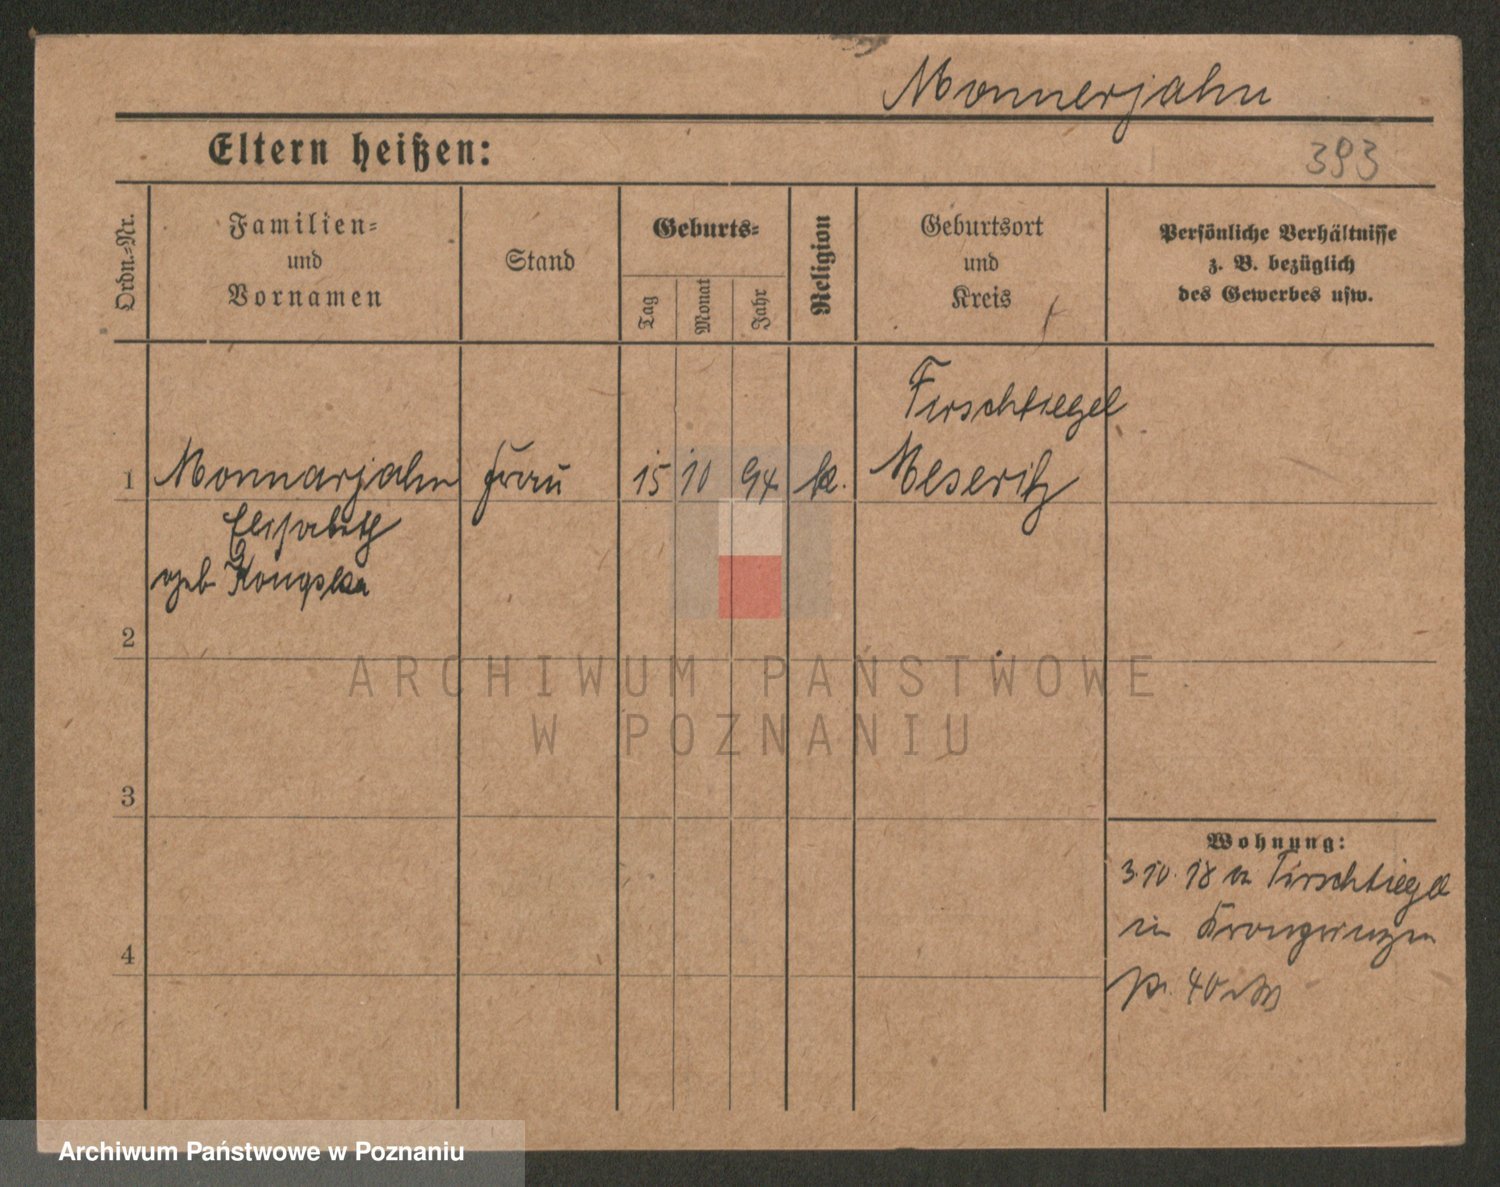 Monnerjahn
Eltern heißen:
393
Ordn.-Nr.
Familien-
und
Vornamen
Stand
Geburts-
Tag
Monat
Jahr
Religion
Geburtsort
und
Kreis
Persönliche Verhältnisse
z. B. bezüglich
des Gewerbes usw.
Tirschtiegel
1 Monnarjahn Frau 15 10 94 k. Meseritz
Elisabeth
geb
2
3
4
Wohnung:
3.10.18 Tirschtiegel
in Kronprinzen
40
ARCHIWUM PAŃSTWOWE
W POZNANIU
Archiwum Państwowe w Poznaniu